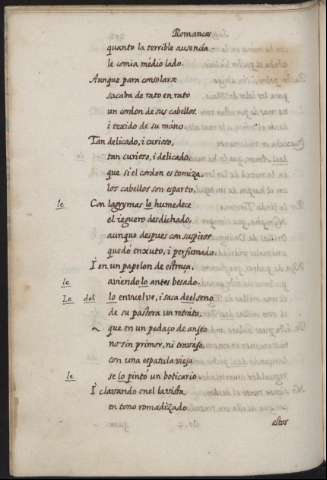 Romances
quanto la terrible ausencia
le comia medio lado.
Aunque para consolarse
sacaba de rato en rato
un cordon de sus cabellos
i texido de su mano.
Tan delicado, i curioso,
tan curioso, i delicado,
que si el cordon es tomiza,
los cabellos son esparto.
le Con lagrymas lo humedece
el ieguero desdichado,
aunque despues con suspiros
quedó enxuto, i perfumado.
I en un papelon de estraça,
le aviendo lo antes besado,
Le del lo enuuelve, i saca del seno
de su pastora un retrato.
Que en un pedaço de anjeo
no sin primor, ni trabajo,
con una espatula vieja
le se lo pintó un boticario.
I clavando en el la vista
en tono romadizado
estos